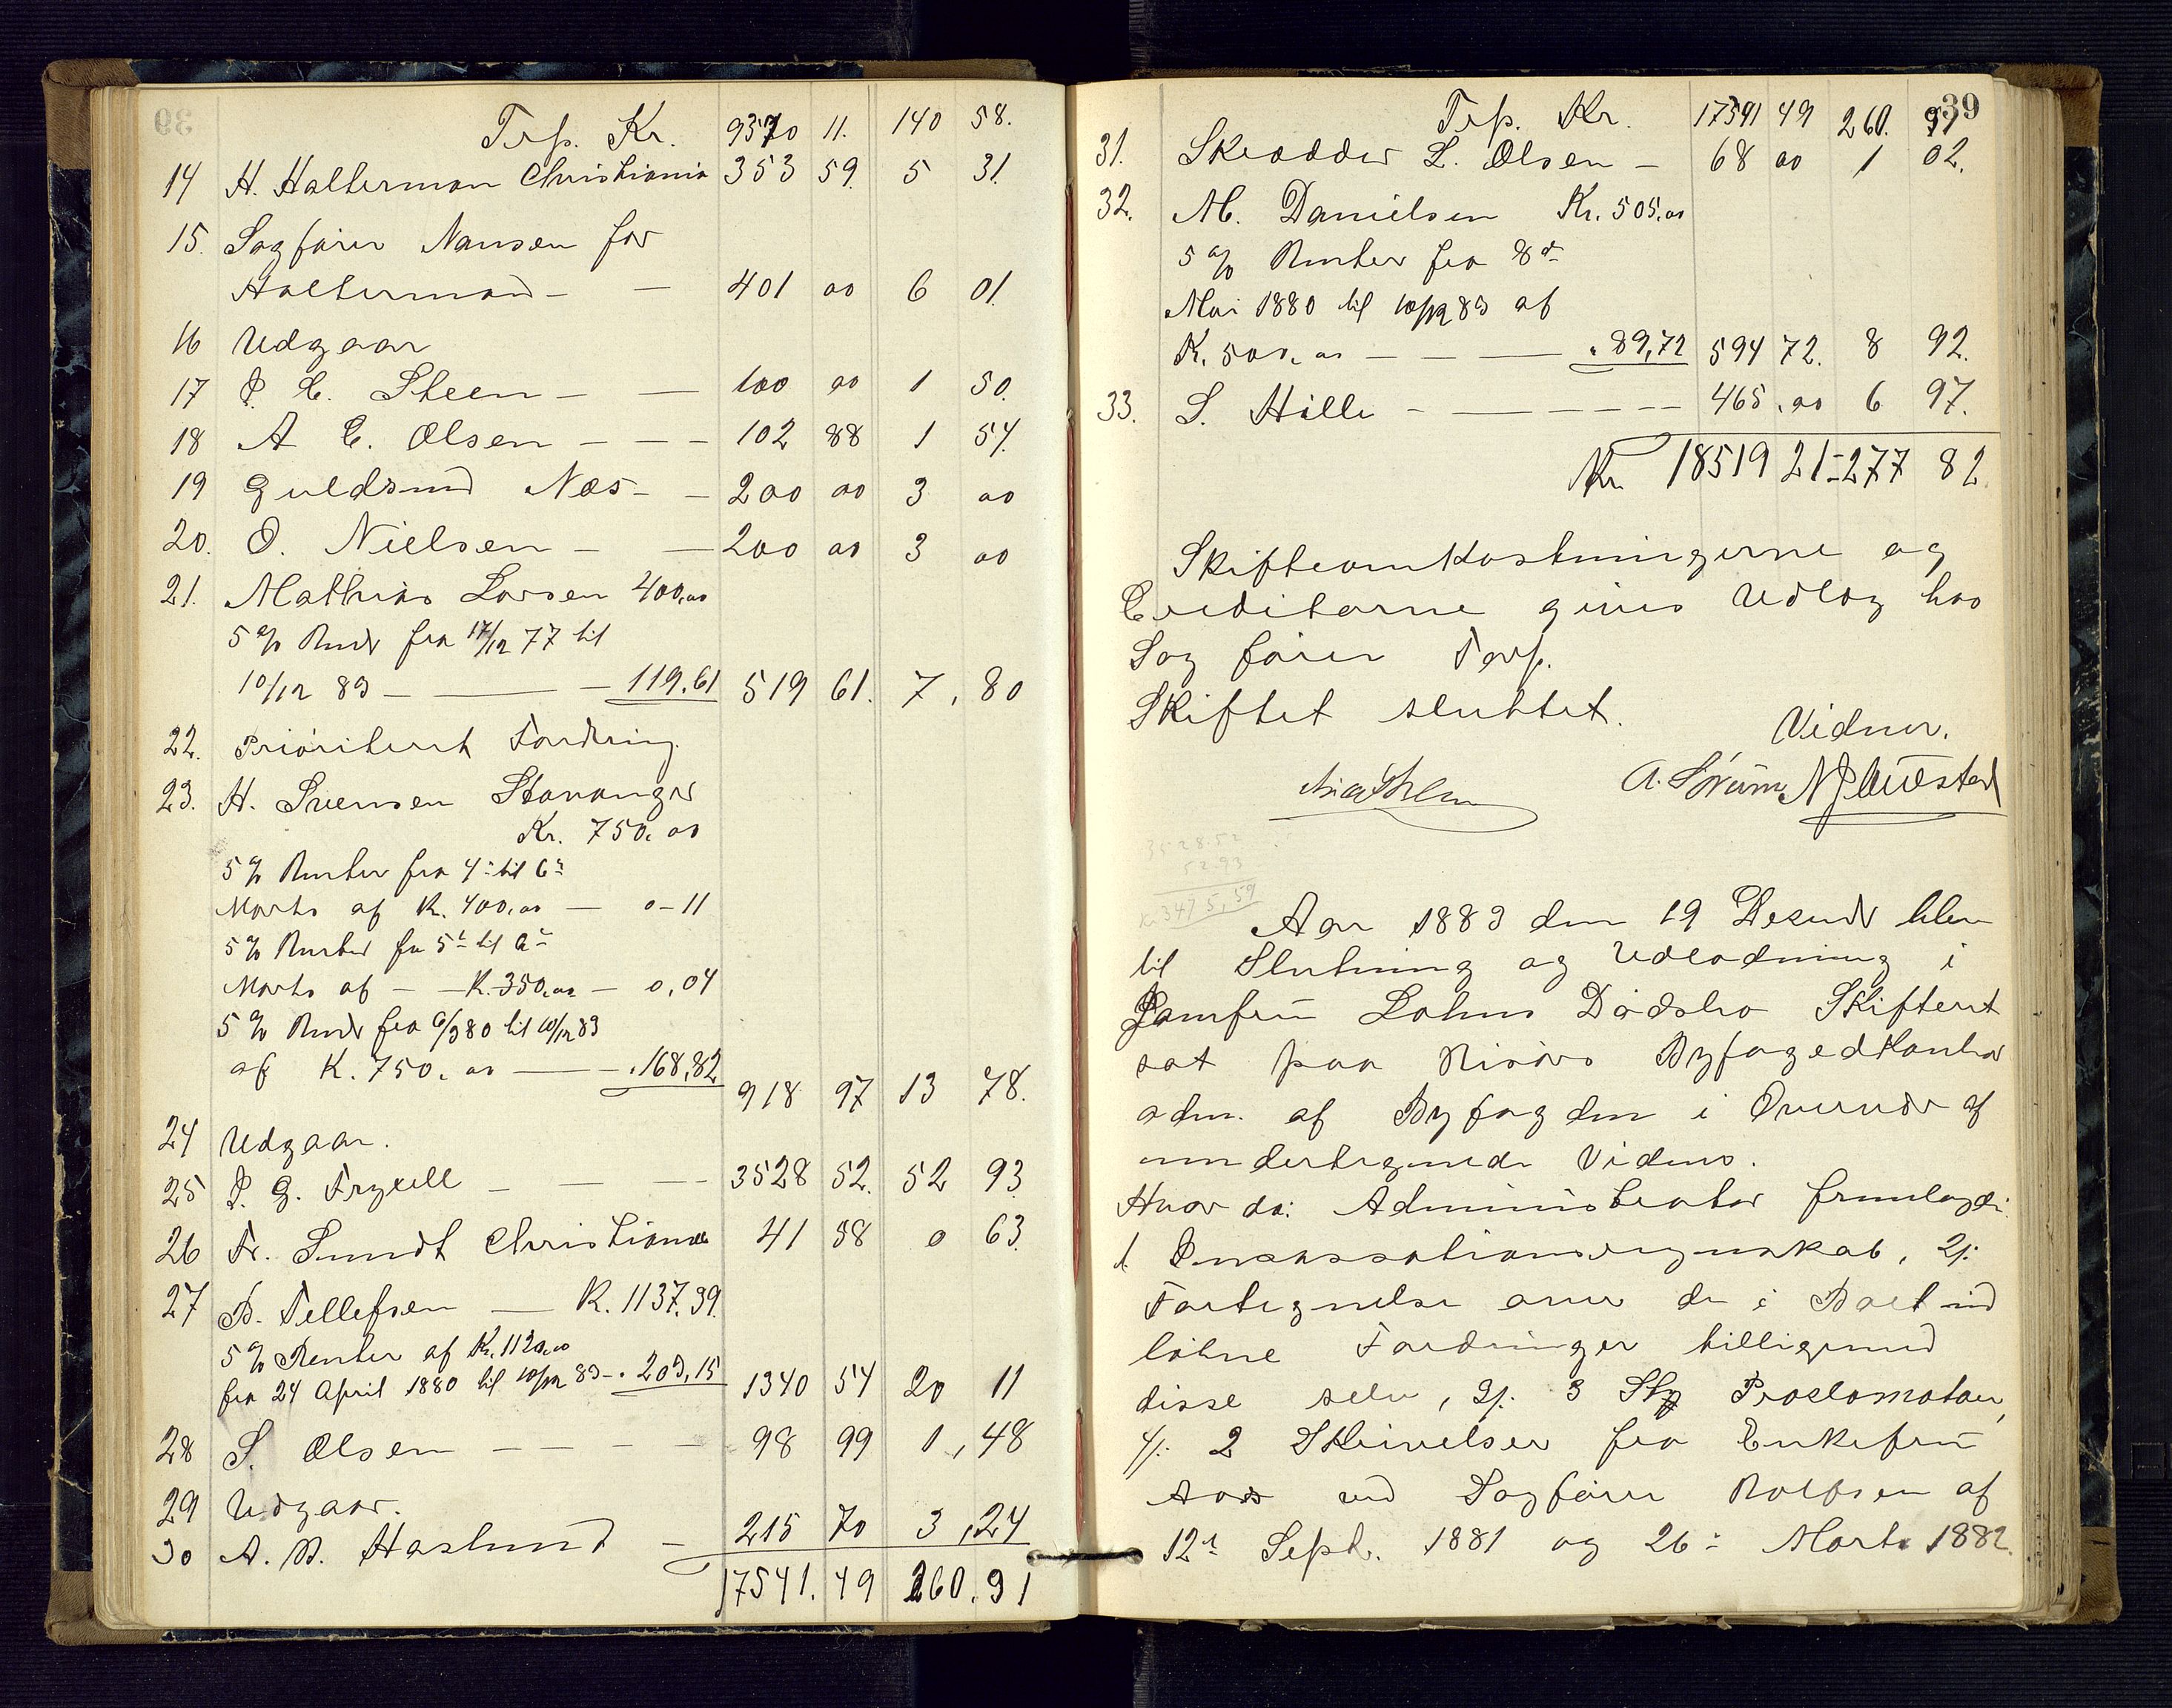 Trsp. Kr. 9370 11. 140 58.
14 H. Halterman Christiania 353 59. 5 31.
15. Sagfører Nansen for
Halterman - — 401 00 6 01.
16 Udgaar
17 P. C. Steen - — 100 00 1 50.
18 A C. Olsen - - - 102 88 1 54.
19 Guldsmed Næs - - 200 00 3 00
20. O. Nielsen - — 200 00 3 00
21. Mathias Larsen 400,00
5 % Rentr fra 17/12 77 til
10/12 83 - — - 119.61 519 61. 7, 80
22. Prioriteret Fordring.
23. H. Svensen Stavanger
Kr. 750,00
5 % Renter fra 4de til 6te
Marts af K. 400,00 — 0-11
5 % Renter fra 5te til 6te
Marts af - - K. 350,00 - 0,04
5 % Rentr fra 6/3 80 til 10/12 83
af K. 750,00 — - . 168,82
918 97 13 78.
24 Udgaar.
25 P. G. Fryxell - — - 3528 52. 52 93
26 Fr. Smidt Christiania 41 58 0 63.
27 B. Tellefsen — K. 1137.39.
5 % Renter af K. 1120,00
fra 24 April 1880 til 10/12 83 - . 203,15 1340 54 20 11
28 S. Olsen - - - - 98 99 1, 48
29 Udgaar.
30 A. B. Haslund - 215 70 3, 24
17541. 49 260. 91
39
Trsp. Kr. 17541 49 260. 91
31. Skrædder L. Olsen - 68 00 1 02.
32. M. Danielsen Kr. 505,00
5 % Renter fra 8de
Mai 1880 til 10/12 83 af
K. 500,00 - - — . 89,72 594 72. 8 92.
33. S. Hille - — - - - - 465,00 6 97.
Kr. 18519 21 - 277 82
Skifteomkostningerne og
Creditorne gives Udlæg hos
Sagfører Tarp.
Skiftet sluttet.
Vidner.
A. Sørum
3528.52
52.93
K. 3475,59
Aar 1883 den 19 Desembr blev
til Slutning og Udlodning i
Jomfru Lohns Dødsbo Skifteret
sat paa Risørs Byfogedkontor
adm. af Byfogden i Overvær af
undertegnede Vidner.
Hvor da: Administrator fremlagde:
1 Incassationsregnskab, 2/:
Fortegnelse over de i Boet ind
løbne Fordringer tilligemed
disse selv, 3/: 3 Stk Proclamataer,
4/: 2 Skrivelser fra Enkefru
Aas ved Sagfører Rolfsen af
12te Septr. 1881 og 26de Marts 1882.